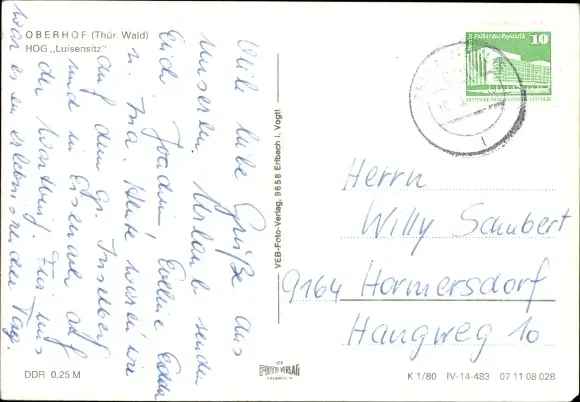 OBERHOF (Thür. Wald)
HOG „Luisensitz"
Viele liebe Grüße aus
unserem Urlaub senden
Euch Joachim
u. Ina. Heute waren wir
auf dem Gr. Inselberg
und in Eisenach auf
der Wartburg. Für uns
war es ein erlebnisreicher Tag.
DDR 0,25 M
VEB-Foto-Verlag, 9658 Erlbach i. Vogtl.
VEB
FOTO VERLAG
ERLBACH
Palast der Republik
10
Herrn
Willy Schubert
9164 Hormersdorf
Hangweg 10
K 1/80 IV-14-483 07 11 08 028